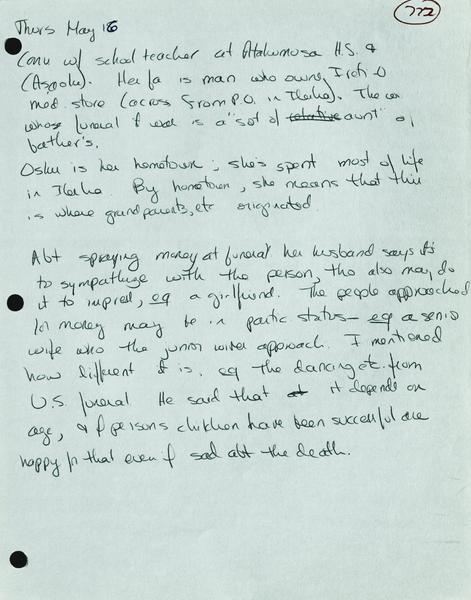 772
Thurs May 16
Conv w/ school teacher at Atakumosa H.S. &
(Asaolu). Her fa is man who owns
med. store (across from P.O. in Ilesha). The
whose funeral it was is a "sort of relative aunt" of
father's.
Oshu is her hometown; she's spent most of life
in Ilesha. By hometown, she means that this
is where grandparents, etc originated.
Abt spraying money at funeral her husband says it's
to sympathize with the person, tho also may do
it to impress, eg a girlfriend. The people approached
for money may be in partic status – eg a senior
wife who the junior wives approach. I mentioned
how different it is, eg the dancing etc. from
U.S. funeral. He said that it depends on
age, & if persons children have been successful are
happy for that even if sad abt the death.